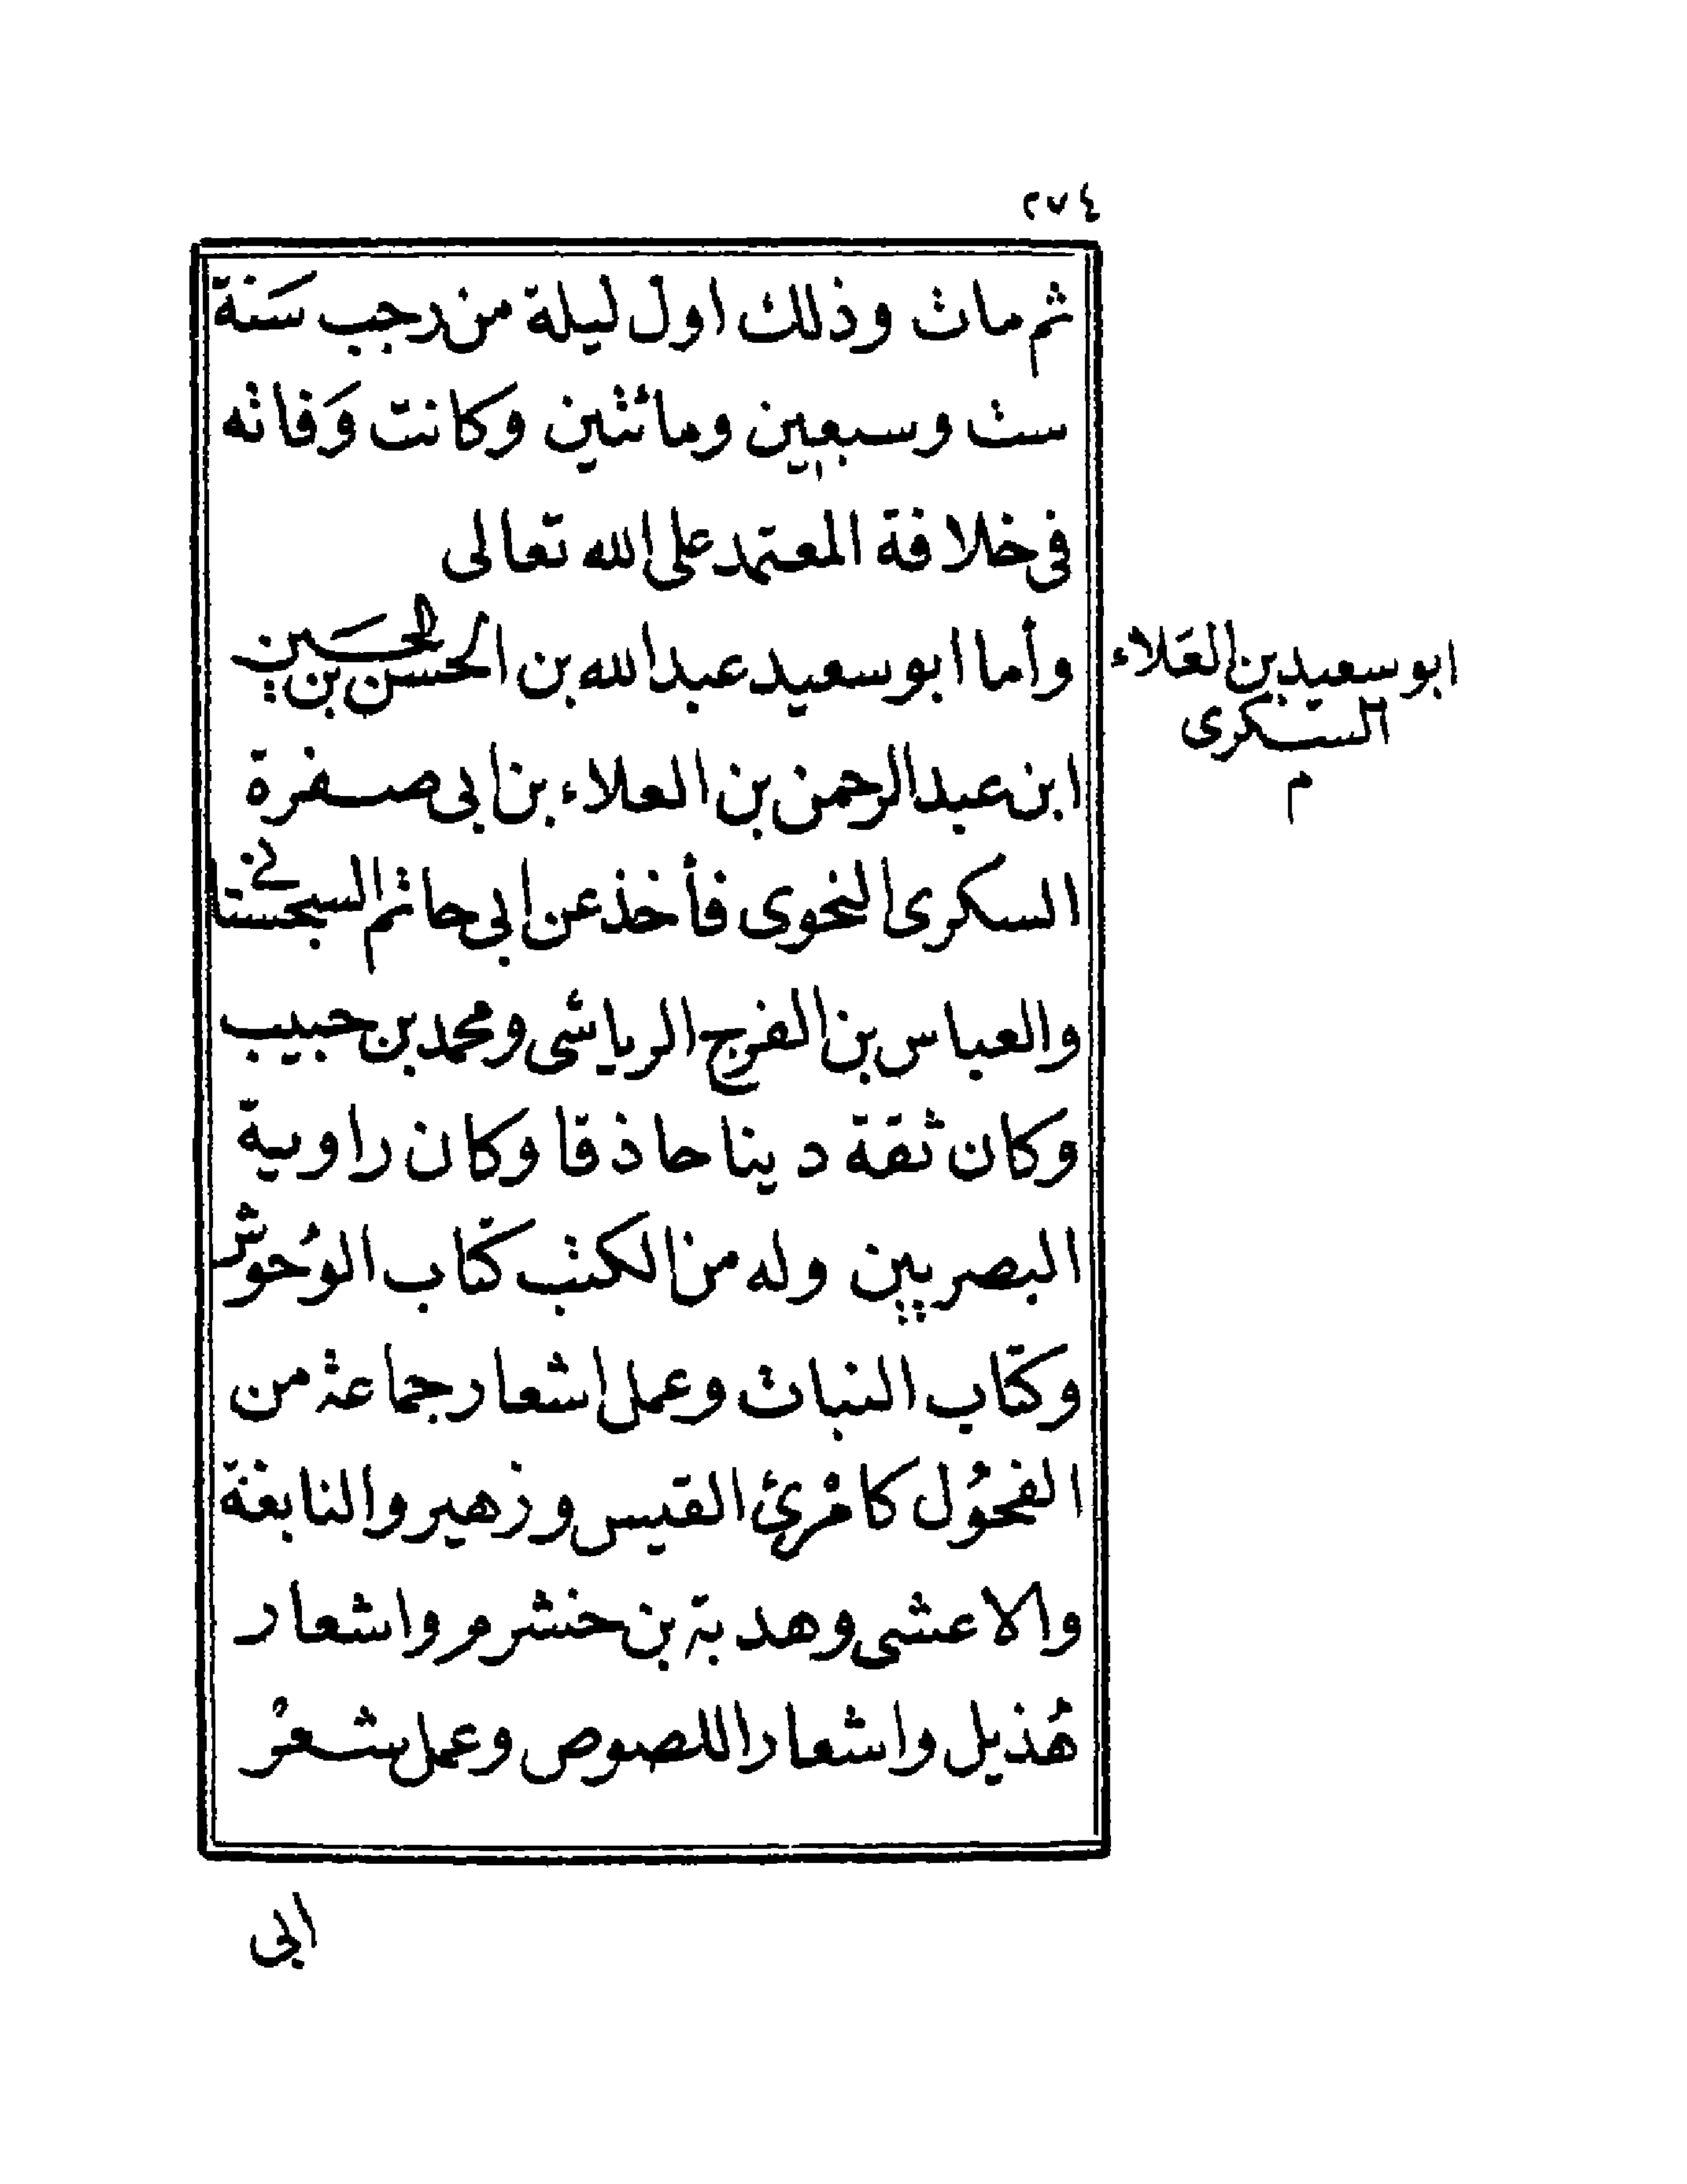 ٢٧٤
ثم مات وذلك اول ليلة من رجب سَنة
ست وسبعين ومائتين وكانت وَفاته
فى خلافة المعتمد على الله تعالى
وأما ابو سعيد عبد الله بن الحسن بن الحسَين
ابن عبد الرحمن بن العلاء بن ابى صفرة
السكرى النحوى فأخذ عن ابى حاتم السجستانى
والعباس بن الفرج الرياشى ومحمد بن حبيب
وكان ثقة دينا حاذقا وكان راوية
البصريين وله من الكتب كتاب الوُحوش
وكتاب النبات وعمل اشعار جماعة من
الفحوُل كامْرئ القيس وزهير والنابغة
والاعشى وهدبة بن خشرم واشعار
هُذيل واشعار اللصوص وعمل شعْر
ابى
ابو سعيد بن العَلاء
السكرى
م